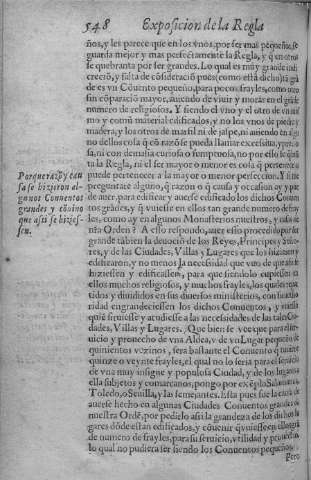 548 Exposicion de la Regla
ños, y les parece que en los vnos, por ser mas pequeños, se
guarda mejor y mas perfectamente la Regla, y q̃ en otros
se quebranta por ser grandes. Lo qual es muy grande indis
crecion, y falta de cõsideraciõ pues (como està dicho) tã grã
de es vn Cõuento pequeño, para pocos frayles, como otro
sin cõparaciõ mayor, auiendo de viuir y morar en el grãde
numero de religiosos. Y siendo el vno y el otro de vn mis
mo y comũ material edificados, y no los vnos de piedra y
madera, y los otros de marfil ni de jaspe, ni auiendo en algu
no dellos cosa q̃ cõ razõ se pueda llamar excessiua,
sa, ni con demasia curiosa o sumptuosa, no por esso se quita
ta la Regla, ni el ser mayor o menor es cosa q̃ pertenece o
puede pertenecer a la mayor o menor perfeccion. Y si me
preguntare alguno, q̃ razon o q̃ causa y occasion ay y pue
de auer, para edificar y auerse edificado los dichos Conuen
tos grandes, y q̃ viuiesse en ellos tan grande numero de fray
les, como ay en algunos Monasterios nuestros, y casas de
nr̃a Orden? A esso respondo, auer esso procedido por la
grande tãbien la deuociõ de los Reyes, Principes y Seño-
res, y de las Ciudades, Villas y Lugares que los hizieron y
edificaron, y no menos la necessidad que vuo de que assi se
hiziessen y edificassen, para que siendolo cupiessen en
ellos muchos religiosos, y muchos frayles, los quales repar
tidos y diuididos en sus diuersos ministerios, con
ridad engrandeciessen los dichos Conuentos, y
quẽ siruiesse y acudiesse a las necessidades de las tales Ciu-
dades, Villas y Lugares. Que bien se vee que para el ser-
uicio y prouecho de vna Aldea, v de vn Lugar pequeño de
quinientos vezinos, sera bastante el Conuento q̃ tuuiere
quinze o veynte frayles, el qual no lo seria para el seruicio
de vna muy insigne y populosa Ciudad, y de los lugares a
ella subjetos y comarcanos, pongo por exẽplo Salamanca,
Toledo, o Seuilla, y las semejantes. Esta pues fue la causa de
auerse hecho en algunas Ciudades Conuentos grandes de
nuestra Ordẽ, por pedirlo assi la grandeza de los dichos lu
gares dõde estan edificados, y cõuenir q̃ viuiessen en ellos grã
de numero de frayles, para su seruicio, vtilidad y prouecho,
lo qual no pudiera ser siendo los Conuentos pequeños.
Pero
Porque razõ y cau
sa se hizieron al-
gunos Conuentos
grandes y cõuino
que assi se hizies-
sen.